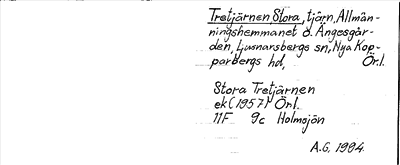 Tretjärnen Stora, tjärn, Allmän-
ningshemmanet o. Ängesgår-
den, Ljusnarsbergs sn, Nya Kop-
parbergs hd, Ör.l.
Stora Tretjärnen
ek (1957) Örl.
11F 9c Holmsjön
A.G. 1994